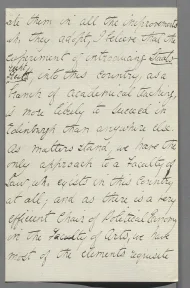 ate them in all the improvements
wh. they adopt, I believe that the
experiment of introducing
into this country, as a
branch of academical culture,
is more likely to succeed in
Edinburgh than anywhere else.
As matters stand, we have the
only approach to a Faculty of
Law wh. exists in this country
at all; and as there is a very
efficient Chair of Political Economy
in the Faculty of Arts, we have
most of the elements requisite